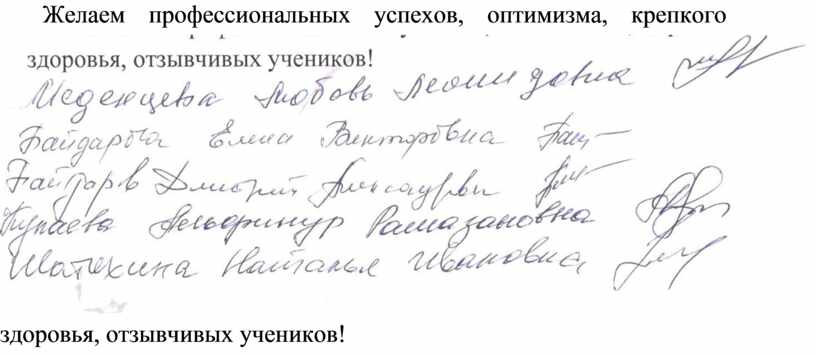 Желаем профессиональных успехов, оптимизма, крепкого
здоровья, отзывчивых учеников!
Меденцева Любовь Леонидовна
Байдарова Елена Викторовна
Байдаров Дмитрий
Тупаева Альфинур Рамазановна
Шатохина Наталья Ивановна
здоровья, отзывчивых учеников!